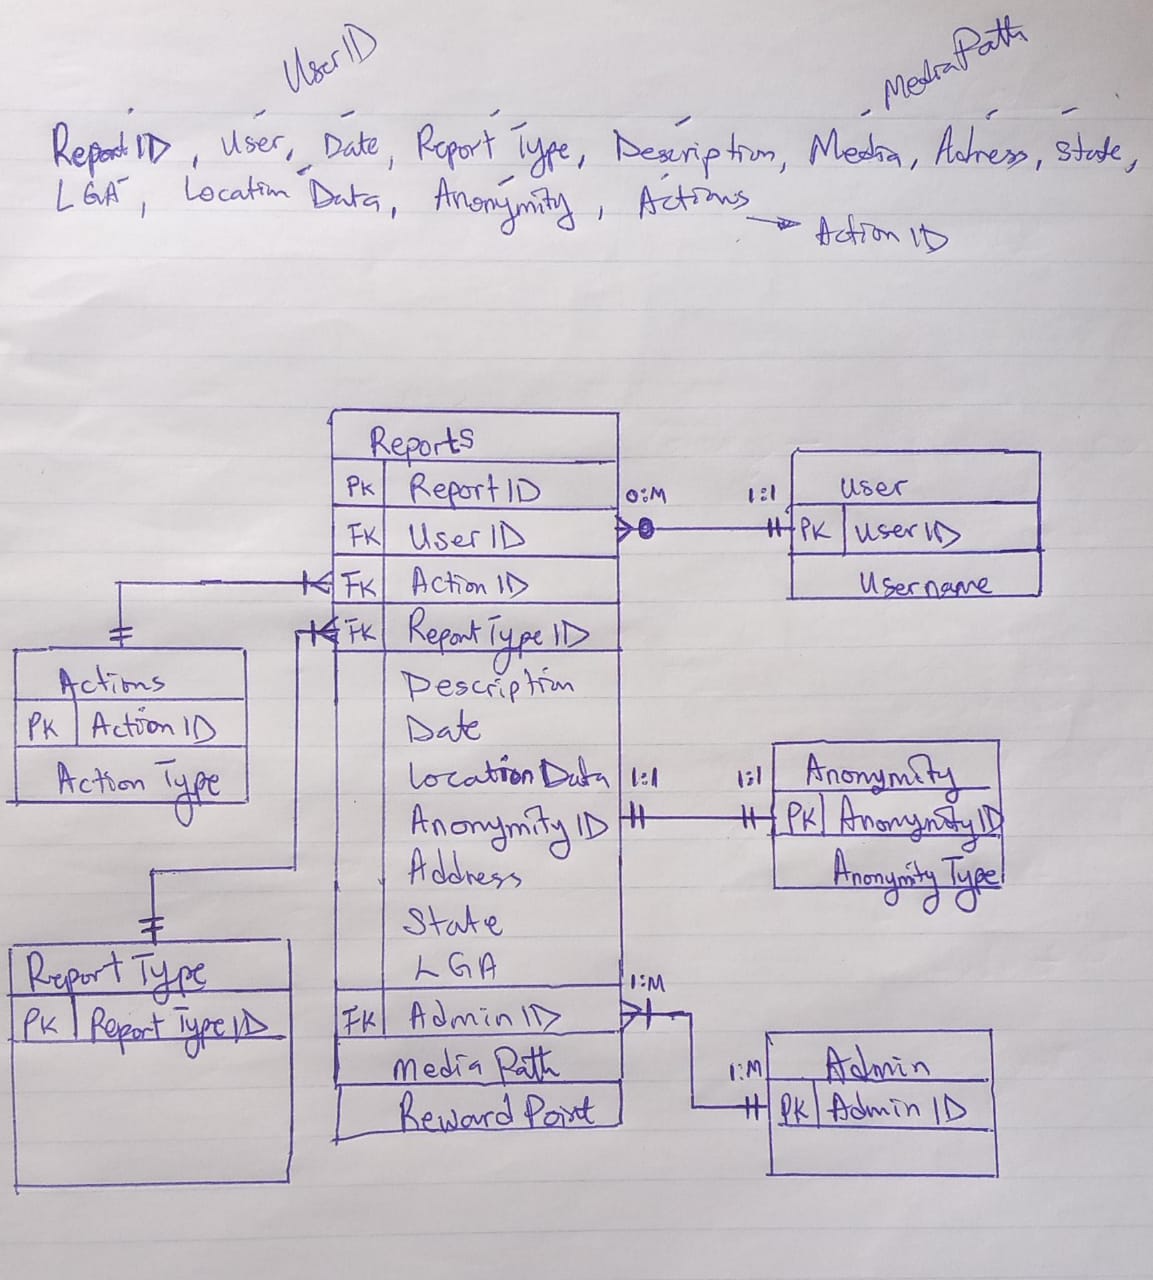 UserID
MediaPath
Report ID, User, Date, Report Type, Description, Media, Adress, State,
LGA, Location Data, Anonymity, Actions
Action ID
Reports
PK Report ID
FK User ID
FK Action ID
FK Report Type ID
Description
Date
Location Data
Anonymity ID
Address
State
LGA
FK Admin ID
Media Path
Reward Point
0:M 1:1
User
PK User ID
Username
Actions
PK Action ID
Action Type
1:1 1:1
Anonymity
PK Anonymity ID
Anonymity Type
Report Type
PK Report Type ID
1:M
1:M
Admin
PK Admin ID